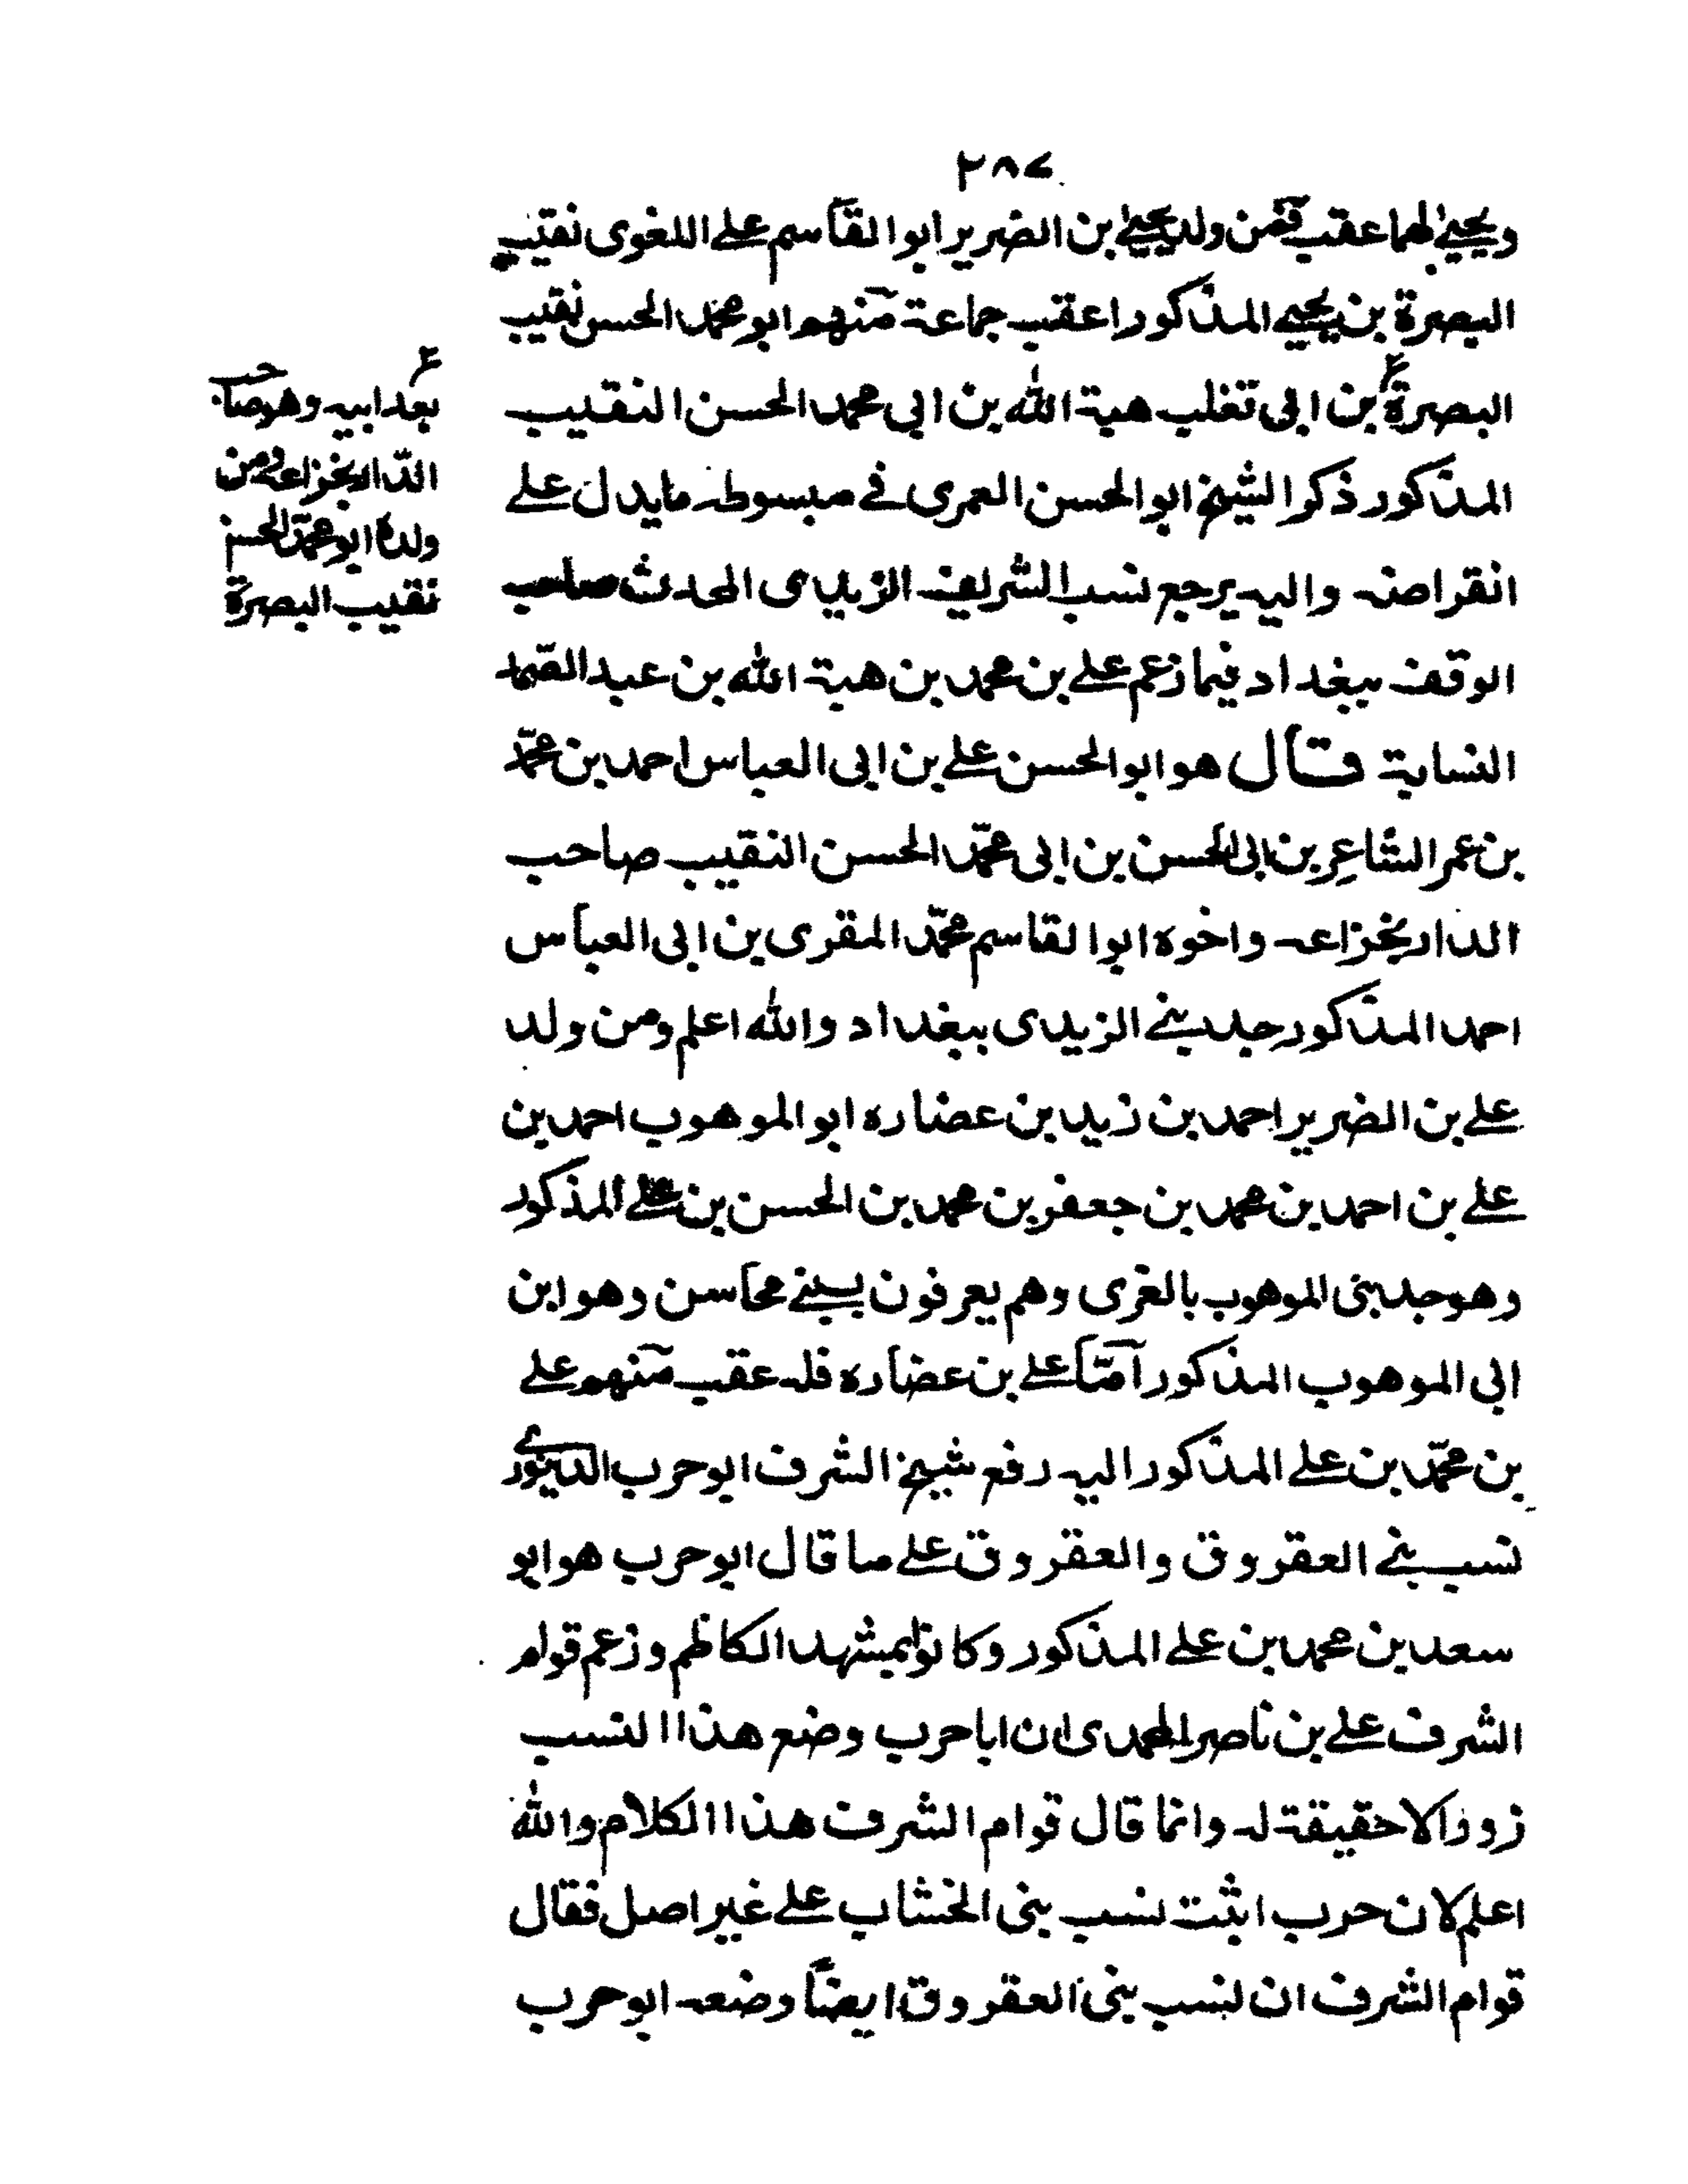 ٢٨٧
ويحيى لهما عقب فمن ولد يحيى بن الضرير ابوا لقاسم علے اللغوى نقيب
البصرة بن يحيے المذكور اعقب جماعة منهم ابو محمد الحسن نقيب
البصرة بن ابى تغلب هبة الله بن ابى محمد الحسن النقيب
المذكور ذكوا لشيخ ابو الحسن العمرى فے مبسوطه مايدل علے
انقراضه واليه يرجع نسب الشريف الزيدى المحدث صاحب
الوقف ببغداد فيما زعم علے بن محمد بن هبة الله بن عبد الصمد
النسابة قال هو ابو الحسن علے بن ابى العباس احمد بن محمّد
بن عمر الشاعر بن ابى الحسن بن ابى محمّد الحسن النقيب صاحب
الدار بخزاعه واخوه ابوا لقاسم محمّد المقرى بن ابى العباس
احمد المذكور جد بنے الزيدى ببغداد والله اعلم ومن ولد
علے بن الضرير احمد بن زيد بن عضاره ابو الموهوب احمد بن
علے بن احمد بن محمد بن جعفر بن محمد بن الحسن بن علے المذكور
وهو جد بنى الموهوب بالغرى وهم يعرفون ببنے محاسن وهو ابن
ابى الموهوب المذكور اما علے بن عضاره فله عقب منهم علے
بن محمّد بن علے المذكور اليه رفع شيخ الشرف ابو حرب الدينورے
نسب بنے العقروق والعقروق علے ما قال ابو حرب هو ابو
سعد بن محمد بن علے المذكور وكانوا بمشهد الكاظم وزعم قوام
الشرف علے بن ناصر المحمدى ان ابا حرب وضع هذا النسب
زورا لا حقيقة له وانما قال قوام الشرف هذا الكلام والله
اعلم لان حرب اثبت نسب بنى الخشاب علے غير اصل فقال
قوام الشرف ان نسب بنى العقروق ايضاً وضعه ابو حرب
بعد ابيه وهو صاحب
الدّار بخزاعه ومن
ولده ابو محمّد الحسن
نقيب البصرة